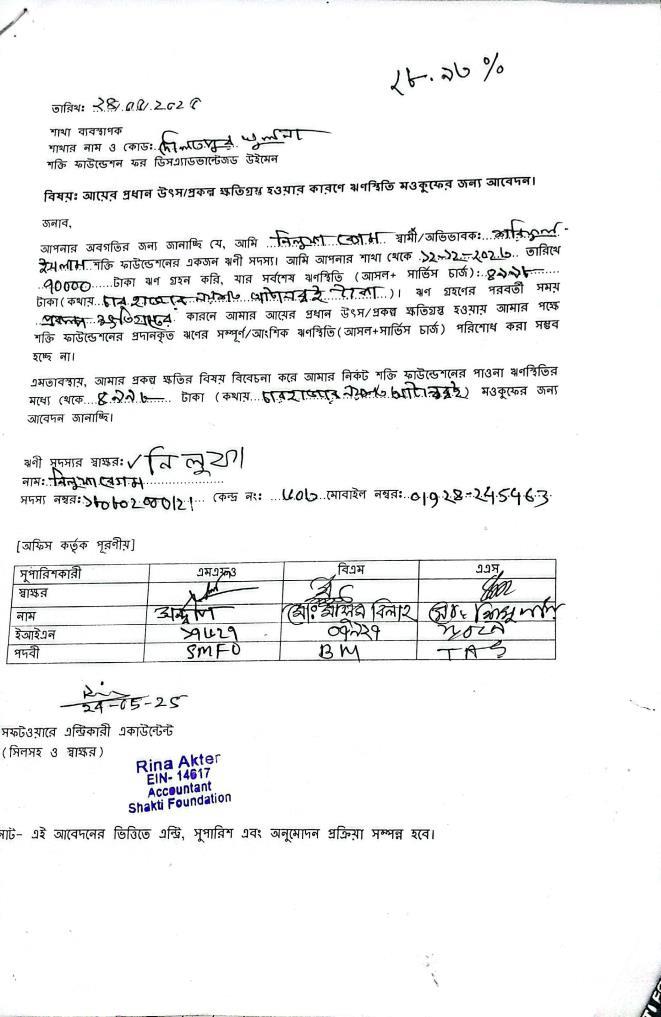 ২৮.৯৩ %
তারিখঃ ২৪/০৫/২০২৫
শাখা ব্যবস্থাপক
শাখার নাম ও কোডঃ দৌলতপুর খুলনা
শক্তি ফাউন্ডেশন ফর ডিসএ্যাডভান্টেজড উইমেন
বিষয়ঃ আয়ের প্রধান উৎস/প্রকল্প ক্ষতিগ্রস্থ হওয়ার কারণে ঋণস্থিতি মওকুফের জন্য আবেদন।
জনাব,
আপনার অবগতির জন্য জানাচ্ছি যে, আমি নিলুফা বেগম স্বামী/অভিভাবকঃ
ইসলাম শক্তি ফাউন্ডেশনের একজন ঋণী সদস্য। আমি আপনার শাখা থেকে ১২-১২-২০২৩ তারিখে
৭০০০০ টাকা ঋণ গ্রহন করি, যার সর্বশেষ ঋণস্থিতি (আসল+ সার্ভিস চার্জ) : ৪৯৯৮
টাকা (কথায় চার হাজার নয়শত আটানব্বই টাকা )। ঋণ গ্রহণের পরবর্তী সময়
প্রকল্প ক্ষতিগ্রস্থের কারনে আমার আয়ের প্রধান উৎস/প্রকল্প ক্ষতিগ্রস্থ হওয়ায় আমার পক্ষে
শক্তি ফাউন্ডেশনের প্রদানকৃত ঋণের সম্পূর্ণ/আংশিক ঋণস্থিতি (আসল+সার্ভিস চার্জ) পরিশোধ করা সম্ভব
হচ্ছে না।
এমতাবস্থায়, আমার প্রকল্প ক্ষতির বিষয় বিবেচনা করে আমার নিকট শক্তি ফাউন্ডেশনের পাওনা ঋণস্থিতির
মধ্যে থেকে ৪৯৯৮ টাকা (কথায় চার হাজার নয়শত আটানব্বই) মওকুফের জন্য
আবেদন জানাচ্ছি।
ঋণী সদস্যের স্বাক্ষরঃ নিলুফা
নামঃ নিলুফা বেগম
সদস্য নম্বরঃ কেন্দ্র নং: মোবাইল নম্বরঃ 01928-245463
[অফিস কর্তৃক পূরণীয়]
সুপারিশকারী এমএফও বিএম এএস
স্বাক্ষর
নাম
ইআইএন
পদবী SMFO BM TAS
24-05-25
সফটওয়ারে এন্ট্রিকারী একাউন্টেন্ট
(সিলসহ ও স্বাক্ষর)
Rina Akter
EIN- 14617
Accountant
Shakti Foundation
নোট- এই আবেদনের ভিত্তিতে এন্ট্রি, সুপারিশ এবং অনুমোদন প্রক্রিয়া সম্পন্ন হবে।